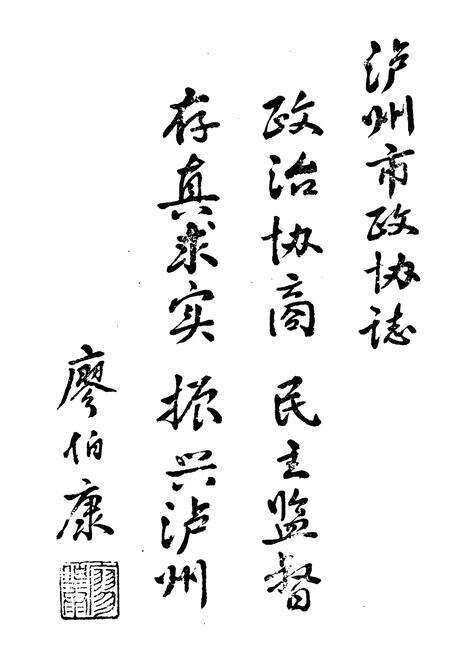 泸州市政协誌
政治协商 民主监督
存真求实 振兴泸州
廖伯康